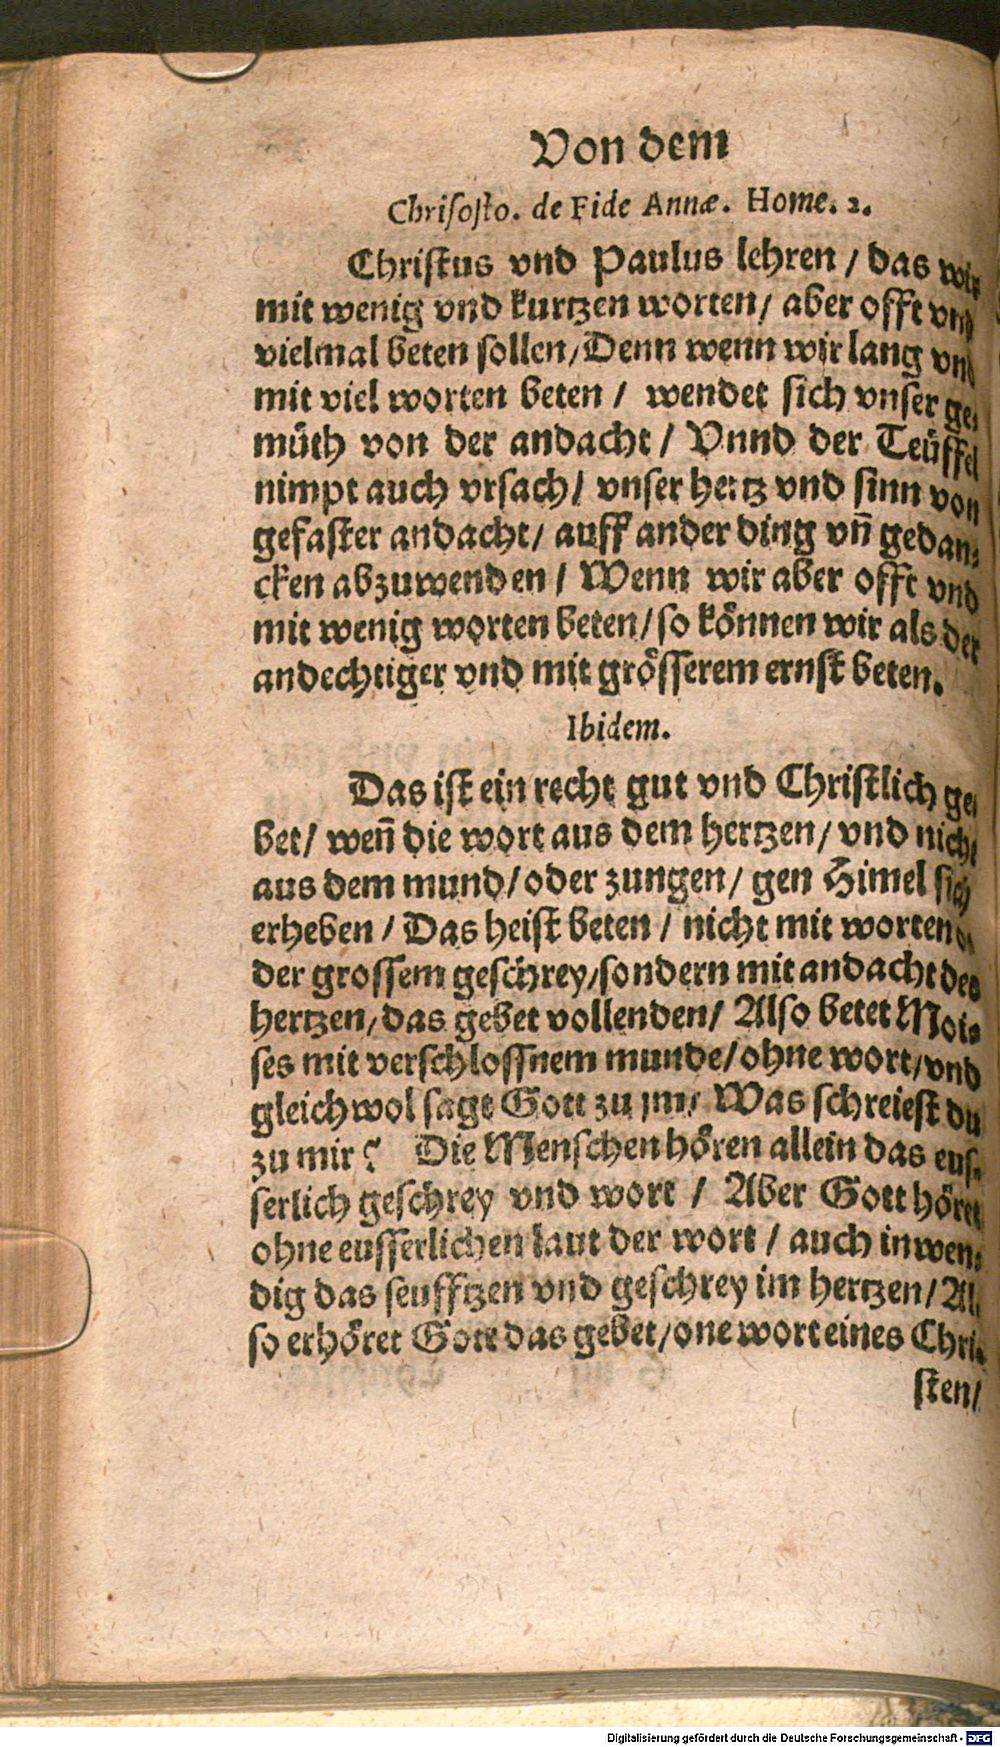 Von dem
Chriſoſto. de Fide Annæ. Home. 2.
Chriſtus vnd Paulus lehren / das wir
mit wenig vnd kurtzen worten / aber offt vnd
vielmal beten ſollen / Denn wenn wir lang vnd
mit viel worten beten / wendet ſich vnſer ge-
müth von der andacht / Vnnd der Teüffel
nimpt auch vrſach / vnſer hertz vnd ſinn von
gefaſter andacht / auff ander ding vñ gedan-
cken abzuwenden / Wenn wir aber offt vnd
mit wenig worten beten / ſo können wir als der
andechtiger vnd mit gröſſerem ernſt beten.
Ibidem.
Das iſt ein recht gut vnd Chriſtlich ge-
bet / weñ die wort aus dem hertzen / vnd nicht
aus dem mund / oder zungen / gen Himel ſich
erheben / Das heiſt beten / nicht mit worten o-
der groſſem geſchrey / ſondern mit andacht des
hertzen / das gebet vollenden / Alſo betet Moi-
ſes mit verſchloſſnem munde / ohne wort / vnd
gleichwol ſagt Gott zu jm / Was ſchreieſt du
zu mir? Die Menſchen hören allein das euſ-
ſerlich geſchrey vnd wort / Aber Gott höret
ohne euſſerlichen laut der wort / auch inwen-
dig das ſeufftzen vnd geſchrey im hertzen / Al-
ſo erhöret Gott das gebet / one wort eines Chri-
ſten /
Digitalisierung gefördert durch die Deutsche Forschungsgemeinschaft - DFG